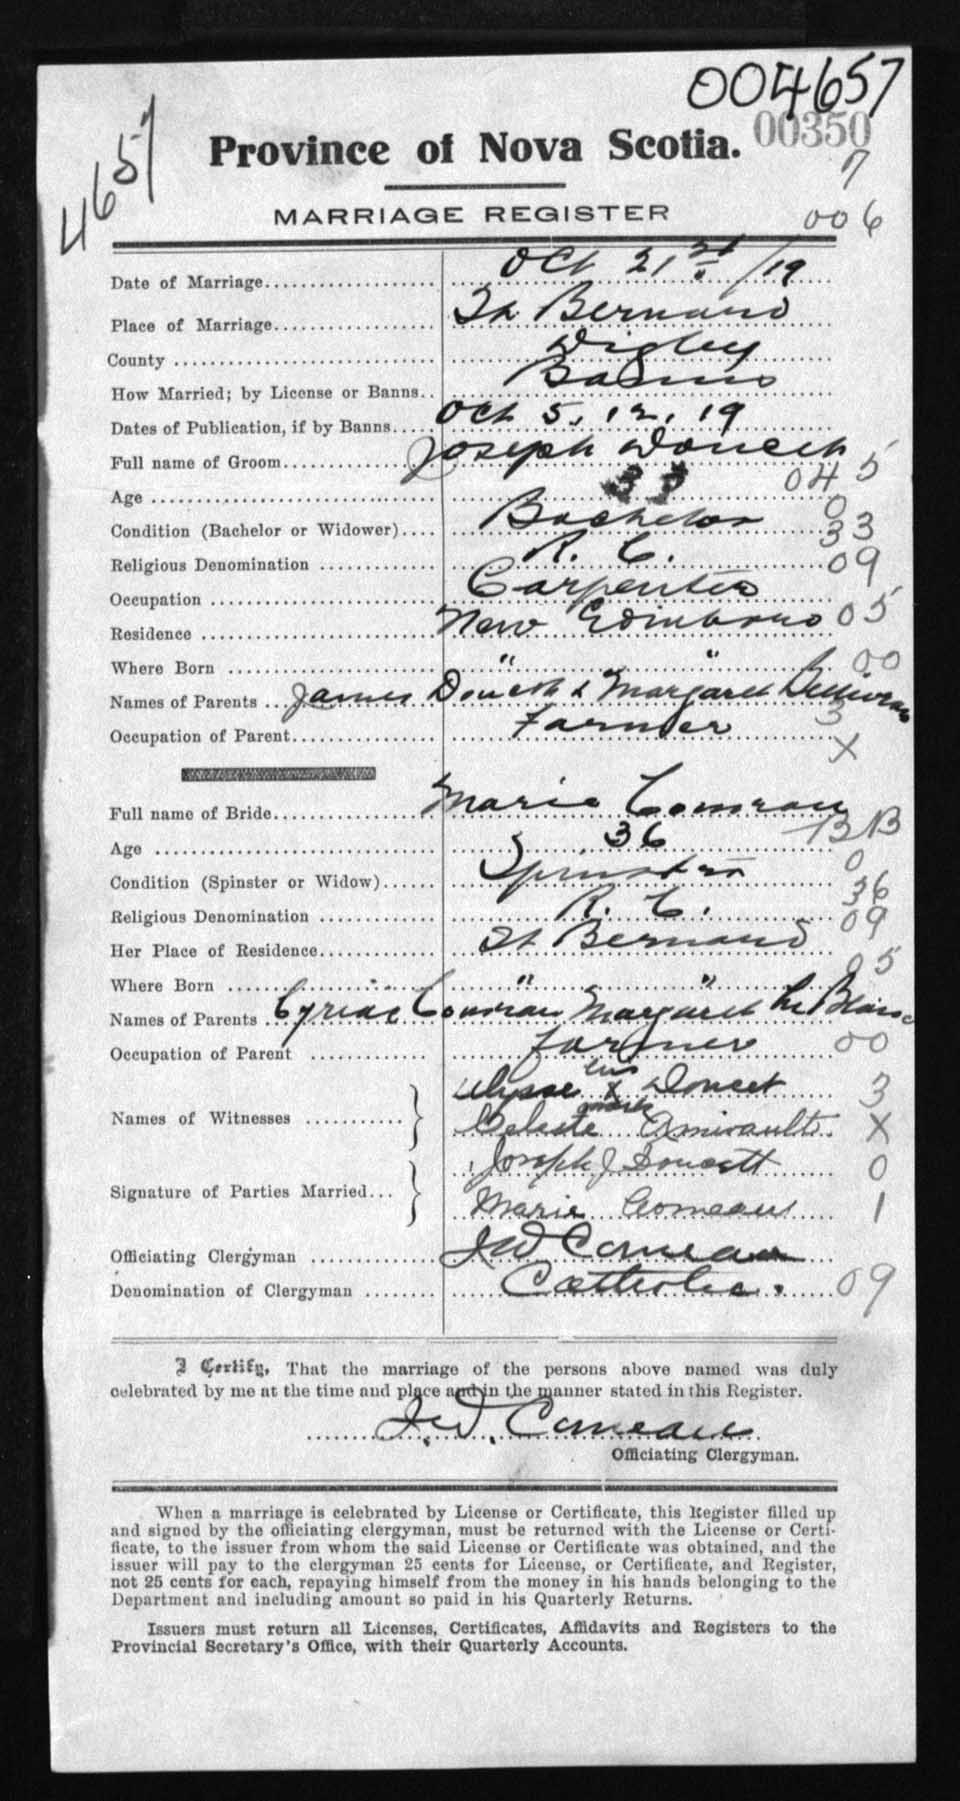 004657
4657
Province of Nova Scotia.
00350
7
MARRIAGE REGISTER
006
Date of Marriage Oct 21st/19
Place of Marriage St Bernard
County Digby
How Married; by License or Banns Banns
Dates of Publication, if by Banns Oct 5, 12, 19
Full name of Groom Joseph Doucett
045
Age 33
0
Condition (Bachelor or Widower) Bachelor
33
Religious Denomination R. C.
09
Occupation Carpenter
Residence New Edinboro 05
Where Born " "
00
Names of Parents James Doucett & Margaret Belliveau
3
Occupation of Parent Farmer
X
Full name of Bride Marie Comeau
Age 36
BB
0
Condition (Spinster or Widow) Spinster
36
Religious Denomination R. C.
09
Her Place of Residence St Bernard
05
Where Born " "
Names of Parents Cyriac Comeau Margaret LeBlanc
Occupation of Parent Farmer 00
his
Names of Witnesses Ulysse X Doucet 3
mark
Celeste Amirault X
Signature of Parties Married Joseph J Doucett 0
Marie Comeau 1
Officiating Clergyman J W Comeau
Denomination of Clergyman Catholic. 09
I Certify, That the marriage of the persons above named was duly
celebrated by me at the time and place and in the manner stated in this Register.
J. W. Comeau
Officiating Clergyman.
When a marriage is celebrated by License or Certificate, this Register filled up
and signed by the officiating clergyman, must be returned with the License or Certi-
ficate, to the issuer from whom the said License or Certificate was obtained, and the
issuer will pay to the clergyman 25 cents for License, or Certificate, and Register,
not 25 cents for each, repaying himself from the money in his hands belonging to the
Department and including amount so paid in his Quarterly Returns.
Issuers must return all Licenses, Certificates, Affidavits and Registers to the
Provincial Secretary's Office, with their Quarterly Accounts.